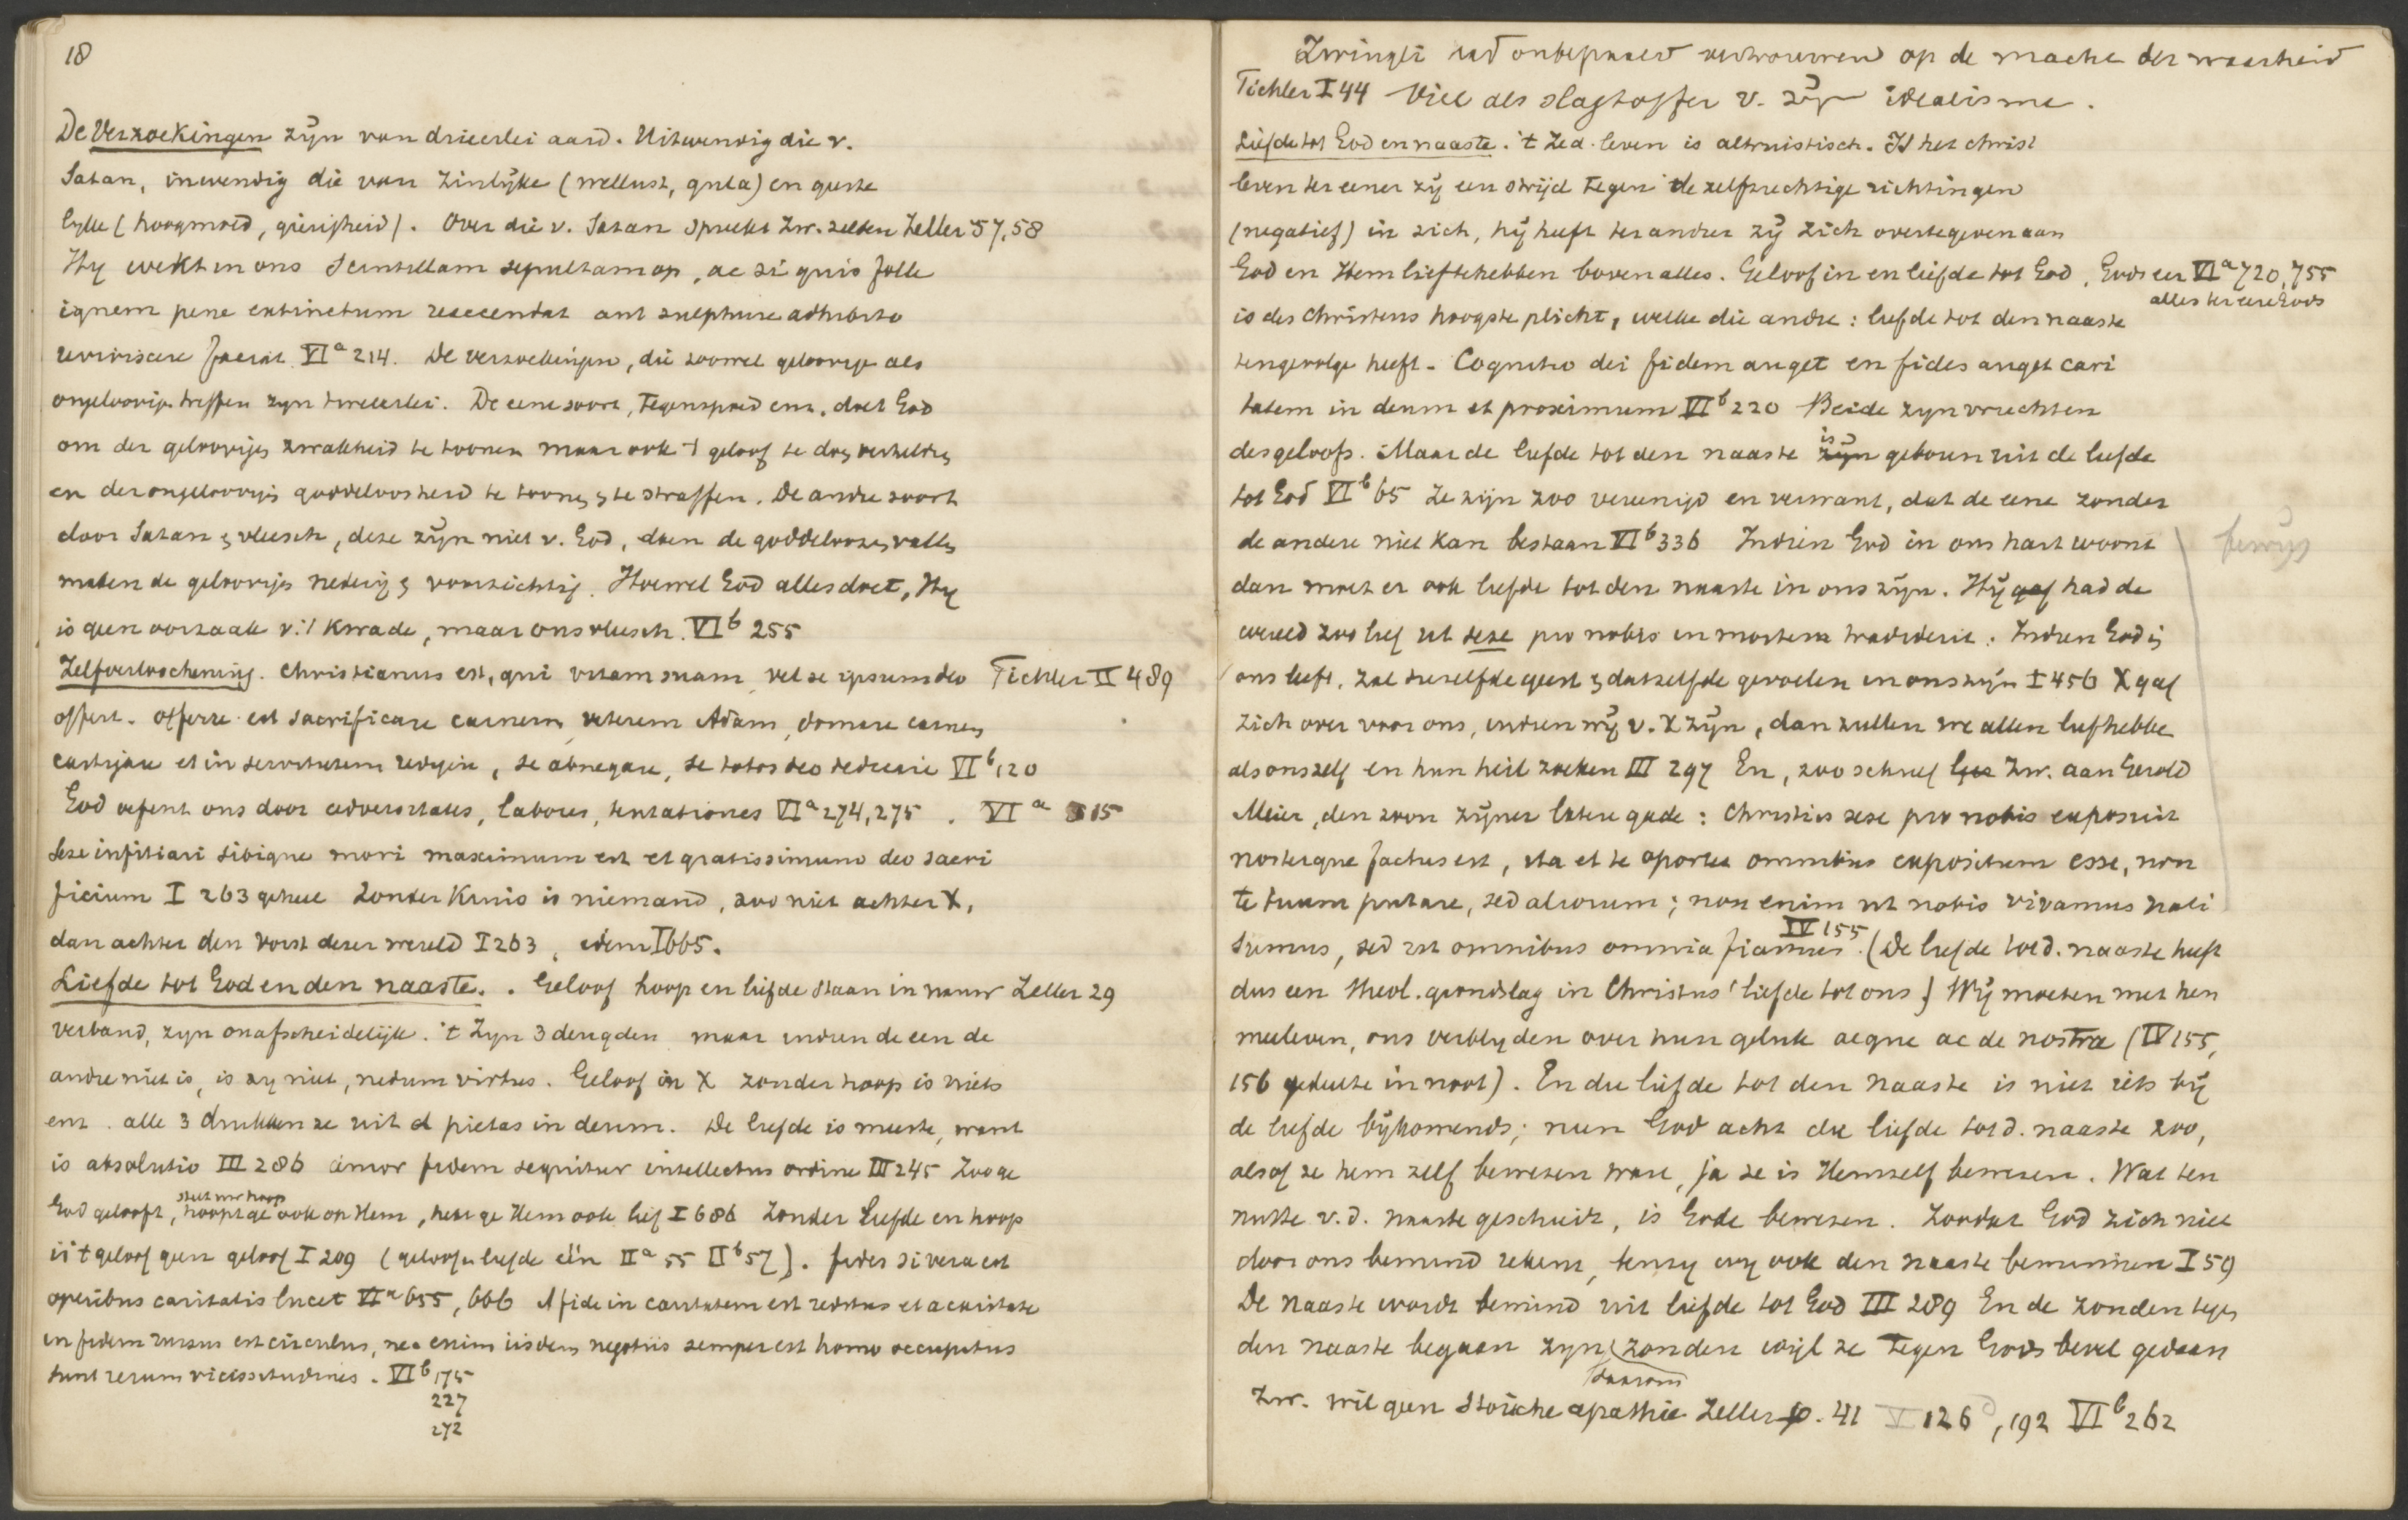 18
De Verzoekingen zijn van drieërlei aard. Uitwendig die v.
Satan, inwendig die van zinlijke (wellust, gula) en geeste
lijke (hoogmoed, gierigheid). Over die v. Satan spreekt Zw. zelden Zeller 57,58
Hij wekt in ons scintillam sepultam op, ac si quis folle
ignem pene extinctum reaccendat aut sulphure adhibito
reviviscere faciat VIa 214. De verzoekingen, die zoowel geloovige als
ongeloovige treffen zijn tweeërlei. De eene soort, tegenspoed enz. doet God
om der geloovigen zwakheid te toonen maar ook 't geloof te doen verhelderen
en der ongeloovigen goddeloosheid te toonen en te straffen. De andre soort
door Satan en vleesch, deze zijn niet v. God, doen de goddeloozen vallen
maken de geloovigen nederig en voorzichtig. Hoewel God alles doet, Hij
is geen oorzaak v. 't kwade, maar ons vleesch. VIb 255
Zelfverloochening. Christianus est, qui vitam suam, vel se ipsum deo Tichler II 489
offert. Offerre est sacrificare carnem, veterem Adam, domare carnem
castigare et in servitutem redigere, se abnegare, se totos deo dedere VIb 120
God oefent ons door adversitates, labores, tentationes VIa 274,275 . VIa 315
Sese infitiari sibique mori maximum est et gratissimum deo sacri
ficium I 263 geheel Zonder kruis is niemand, zoo niet achter X,
dan achter den vorst dezer wereld I 263, idem I 665.
Liefde tot God en den naaste. . Geloof hoop en liefde staan in nauw Zeller 29
verband, zijn onafscheidelijk. 't Zijn 3 deugden maar indien de een de
andre niet is, is zij niet, nedum virtus. Geloof in X zonder hoop is niets
enz. alle 3 drukken ze uit d pietas in deum. De liefde is meeste, want
is absolutio III 286 amor fidem sequitur intellectus ordine III 245 Zoo ge
stelt uw hoop
God gelooft, hoopt ge ook op Hem, hebt ge Hem ook lief I 686 Zonder liefde en hoop
is 't geloof geen geloof I 209 (geloof en liefde één IIa 55 IIb 57). fides si vera est
operibus caritatis lucet VIa 655, 666 A fide in caritatem est reditus et a caritate
in fidem rursus est circulus, nec enim iisdem negotiis semper est homo occupatus
sunt rerum vicissitudines. VIb 175
227
272
Zwingli had onbepaald vertrouwen op de macht der waarheid
Tichler I 44 Viel als slagtoffer v. zijn idealisme.
Liefde tot God en naaste. 't Zed. leven is altruistisch. Is het christ
leven ter eener zij een strijd tegen de zelfzuchtige richtingen
(negatief) in zich, hij heeft ter andrer zij zich overtegeven aan
God en Hem lief te hebben boven alles. Geloof in en liefde tot God, Gods eer VIa 720,755
alles ter eere Gods
is des Christens hoogste plicht, welke die andre: liefde tot den naaste
tengevolge heeft. Cognitio dei fidem auget en fides auget cari
tatem in deum et proximum VIb 220 Beide zijn vruchten
des geloofs. Maar de liefde tot den naaste is zijn geboren uit de liefde
tot God VIb 65 Ze zijn zoo vereenigd en verwant, dat de eene zonder
de andere niet kan bestaan VIb 336 Indien God in ons hart woont bewijs
dan moet er ook liefde tot den naaste in ons zijn. Hij gaf had de
wereld zoo lief ut sese pro nobis in mortem tradiderit. Indien God in
ons leeft, zal dezelfde geest en datzelfde gevoelen in ons zijn I 456 X gaf
zich over voor ons, indien wij v. X zijn, dan zullen we allen liefhebben
als onszelf en hun heil zoeken III 297 En, zoo schreef Zw. aan Gerold
Meier, den zoon zijner latere gade: Christus sese pro nobis exposuit
nosterque factus est, ita et te oportet omnibus expositum esse, non
te tuum putare, sed aliorum; non enim ut nobis vivamus nati
sumus, sed ut omnibus omnia fiamus. IV 155 (De liefde tot d. naaste heeft
dus een theol. grondslag in Christus' liefde tot ons) Wij moeten met hen
meeleven, ons verblijden over hun geluk aeque ac de nostra (IV 155,
156 gedeelte in noot). En die liefde tot den naaste is niet iets bij
de liefde bijkomends; neen God acht die liefde tot d. naaste zoo,
alsof ze hem zelf bewezen ware, ja ze is Hemzelf bewezen. Wat ten
nutte v. d. naaste geschiedt, is Gode bewezen. Zoodat God zich niet
door ons bemind rekent, tenzij wij ook den naaste beminnen I 59
De naaste wordt bemind uit liefde tot God III 289 En de zonden tegen
den naaste begaan zijn daarom zonden wijl ze tegen Gods bevel gedaan
Zw. wil geen Stoïsche apathie Zeller p. 41 V 126, 192 VIb 262